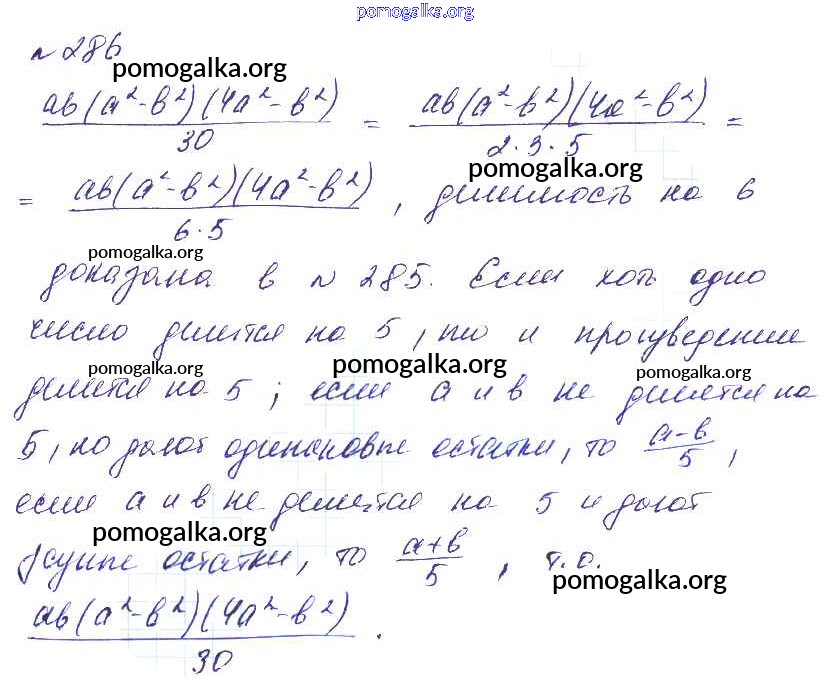 pomogalka.org
№ 286
pomogalka.org
ab(a²-b²)(4a²-b²)/30 = ab(a²-b²)(4a²-b²)/2·3·5 =
pomogalka.org
= ab(a²-b²)(4a²-b²)/6·5, делимость на 6
pomogalka.org
доказана в № 285. Если хоть одно
число делится на 5, то и произведение
pomogalka.org pomogalka.org
делится на 5; если a и b не делятся на
5, но дают одинаковые остатки, то a-b/5,
если a и b не делятся на 5 и дают
pomogalka.org
разные остатки, то a+b/5, т.о.
pomogalka.org
ab(a²-b²)(4a²-b²)/30.